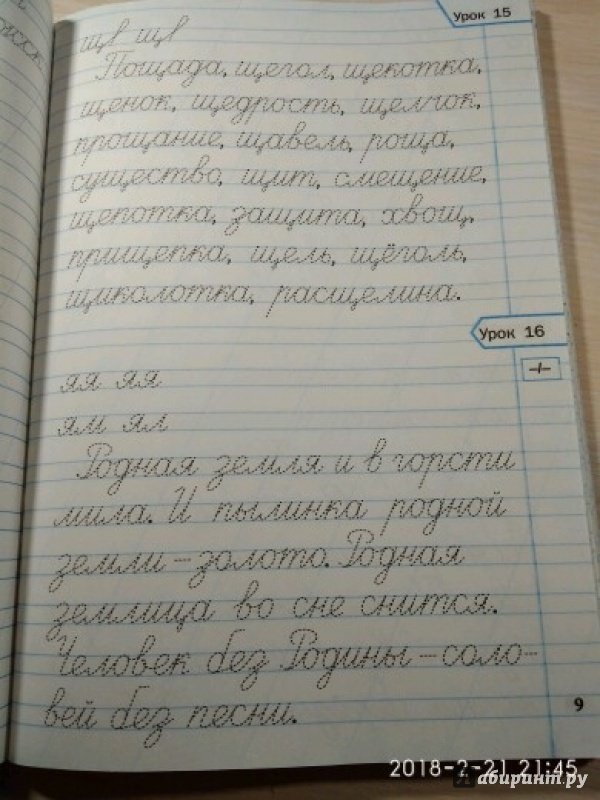 Урок 15
щв щв
Пощада, щегол, щекотка,
щенок, щедрость, щелчок,
прощание, щавель, роща,
существо, щит, смещение,
щепотка, защита, хвощ,
прищепка, щель, щёголь,
щиколотка, расщелина.
Урок 16
яя яя
ям ял
Родная земля и в горсти
мила. И пылинка родной
земли – золото. Родная
землица во сне снится.
Человек без Родины – соло-
вей без песни.
9
2018-2-21 21:45
Лабиринт.ру